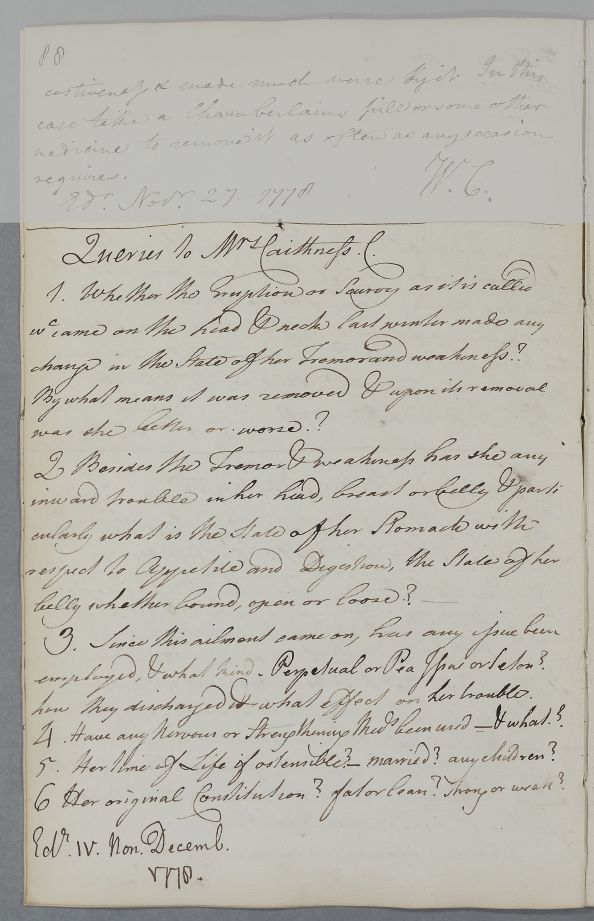 88
costiveness & made much worse by it. In this
case take a Chamberlains pill or some other
medicine to remove it as often as any occasion
requires.
W. C.
Edr. Novr. 27. 1778
Queries to Mrs Caithness. C.
1. Whether the Eruption or Scurvy as it is called
wc came on the head & neck last winter made any
change in the State of her Tremor and weakness?
By what means it was removed & upon its removal
was she better or worse.?
2 Besides the Tremor & weakness has she any
inward trouble in her head, breast or belly & parti
cularly what is the State of her Stomach with
respect to Appetite and Digestion, the State of her
belly whether bound, open or loose? —
3. Since this ailment came on, has any issue been
employed, & what kind. Perpetual or Pea Issue or Seton?
how they discharged & what effect on her trouble.
4. Have any Nervous or Strengthening Meds been used — & what.?
5. Her time of Life if ostensible? — married? any children?
6 Her original Constitution? fat or lean? Strong or weak?
Edr. IV. Non. Decemb.
1778.